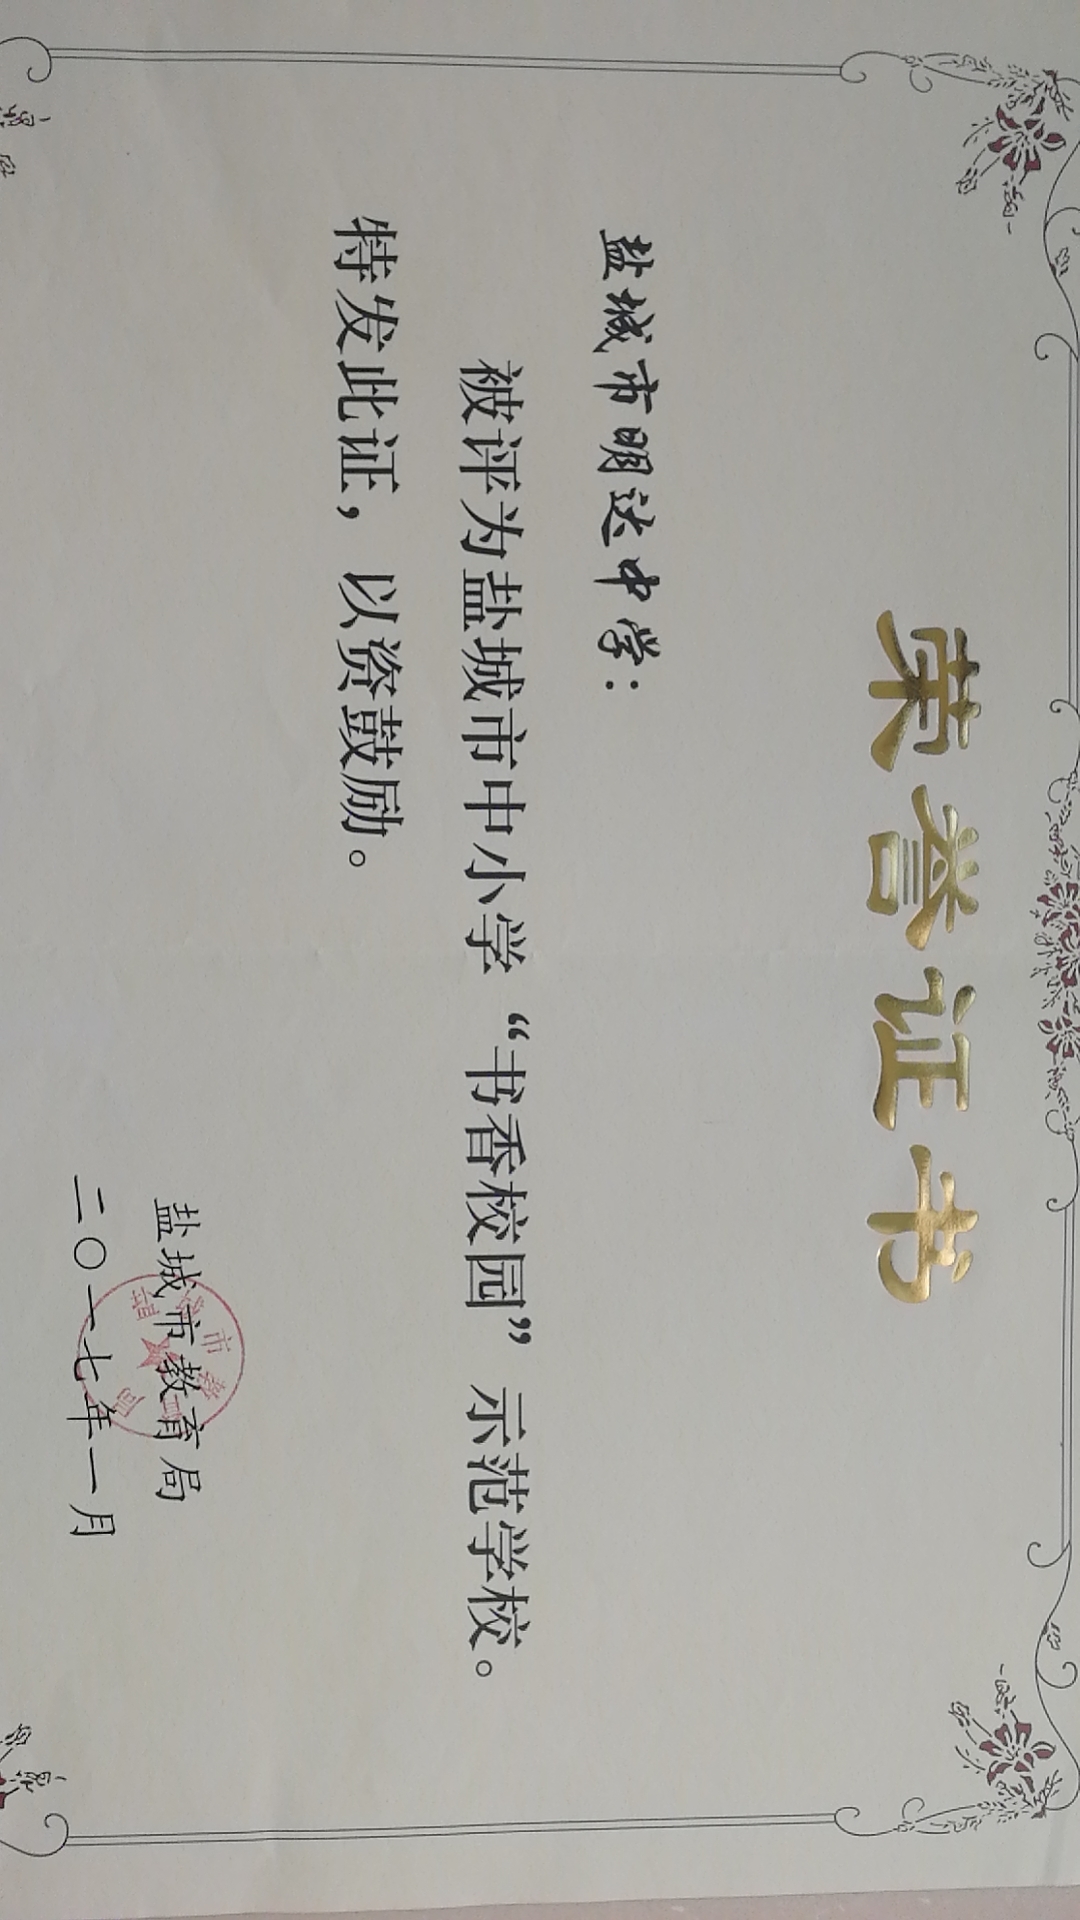 荣誉证书
盐城市明达中学：
被评为盐城市中小学“书香校园”示范学校。
特发此证，以资鼓励。
盐城市教育局
二〇一七年一月